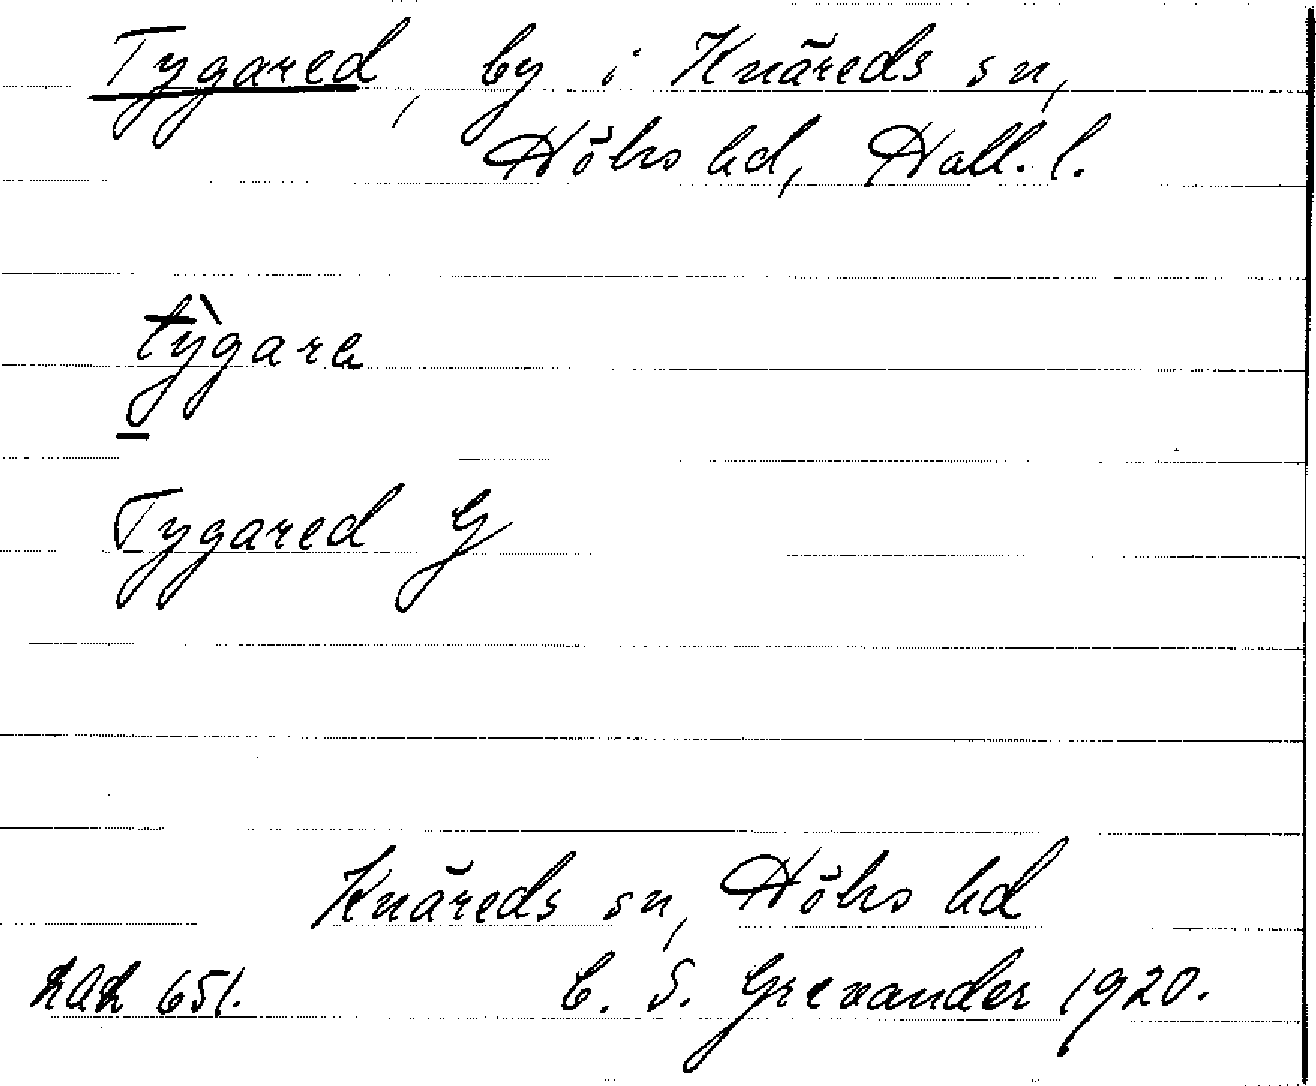 Tygared, by i Knäreds sn,
Höks hd, Hall. l.
tỳgara
Tygared G
Knäreds sn, Höks hd
651. C. S. Grexander 1920.